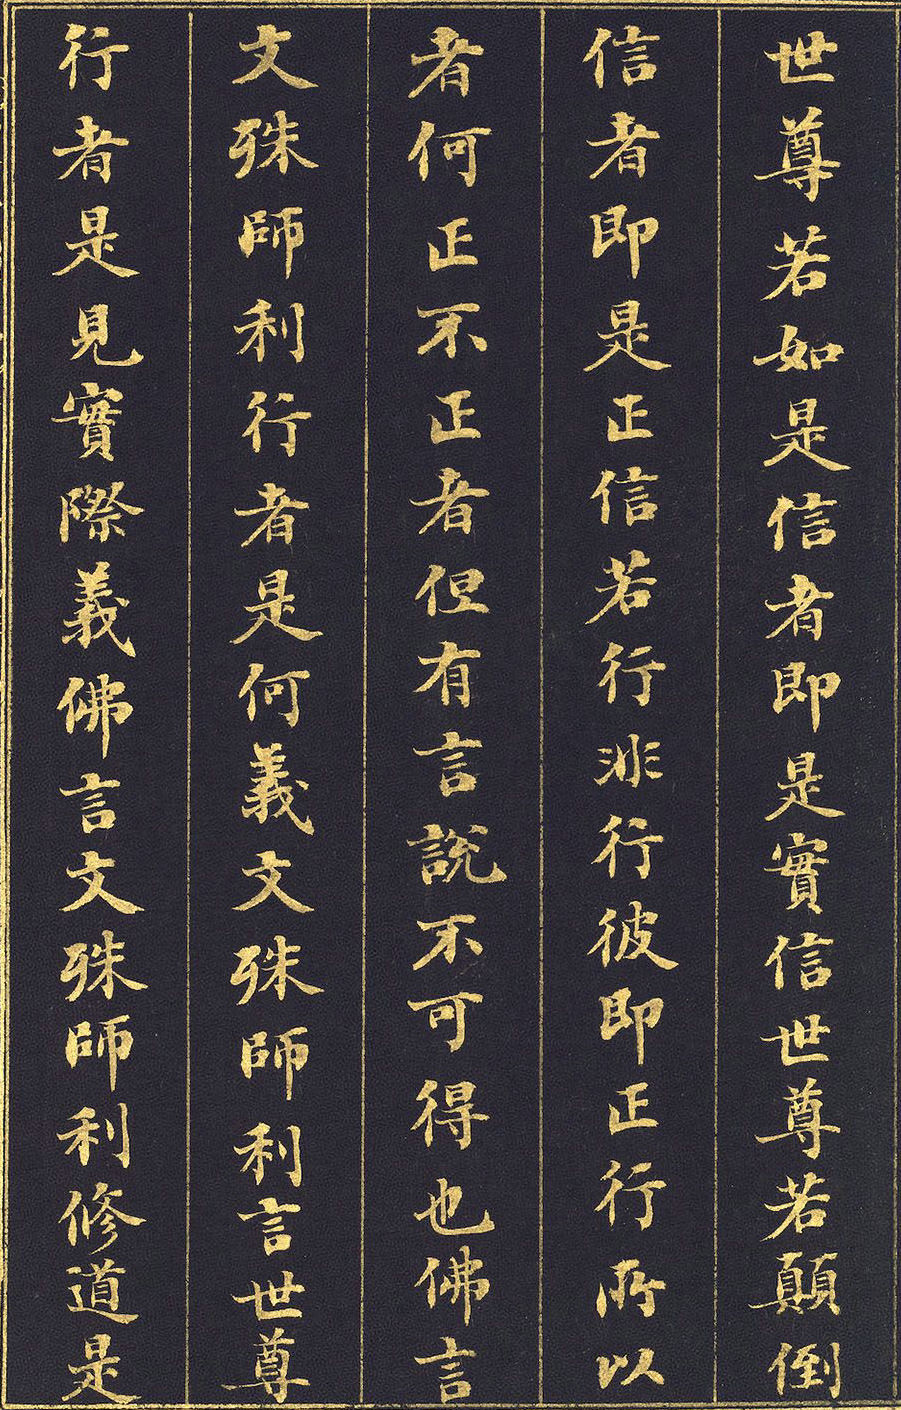 世尊若如是信者即是實信世尊若顛倒
信者即是正信若行非行彼即正行所以
者何正不正者但有言說不可得也佛言
文殊師利行者是何義文殊師利言世尊
行者是見實際義佛言文殊師利修道是